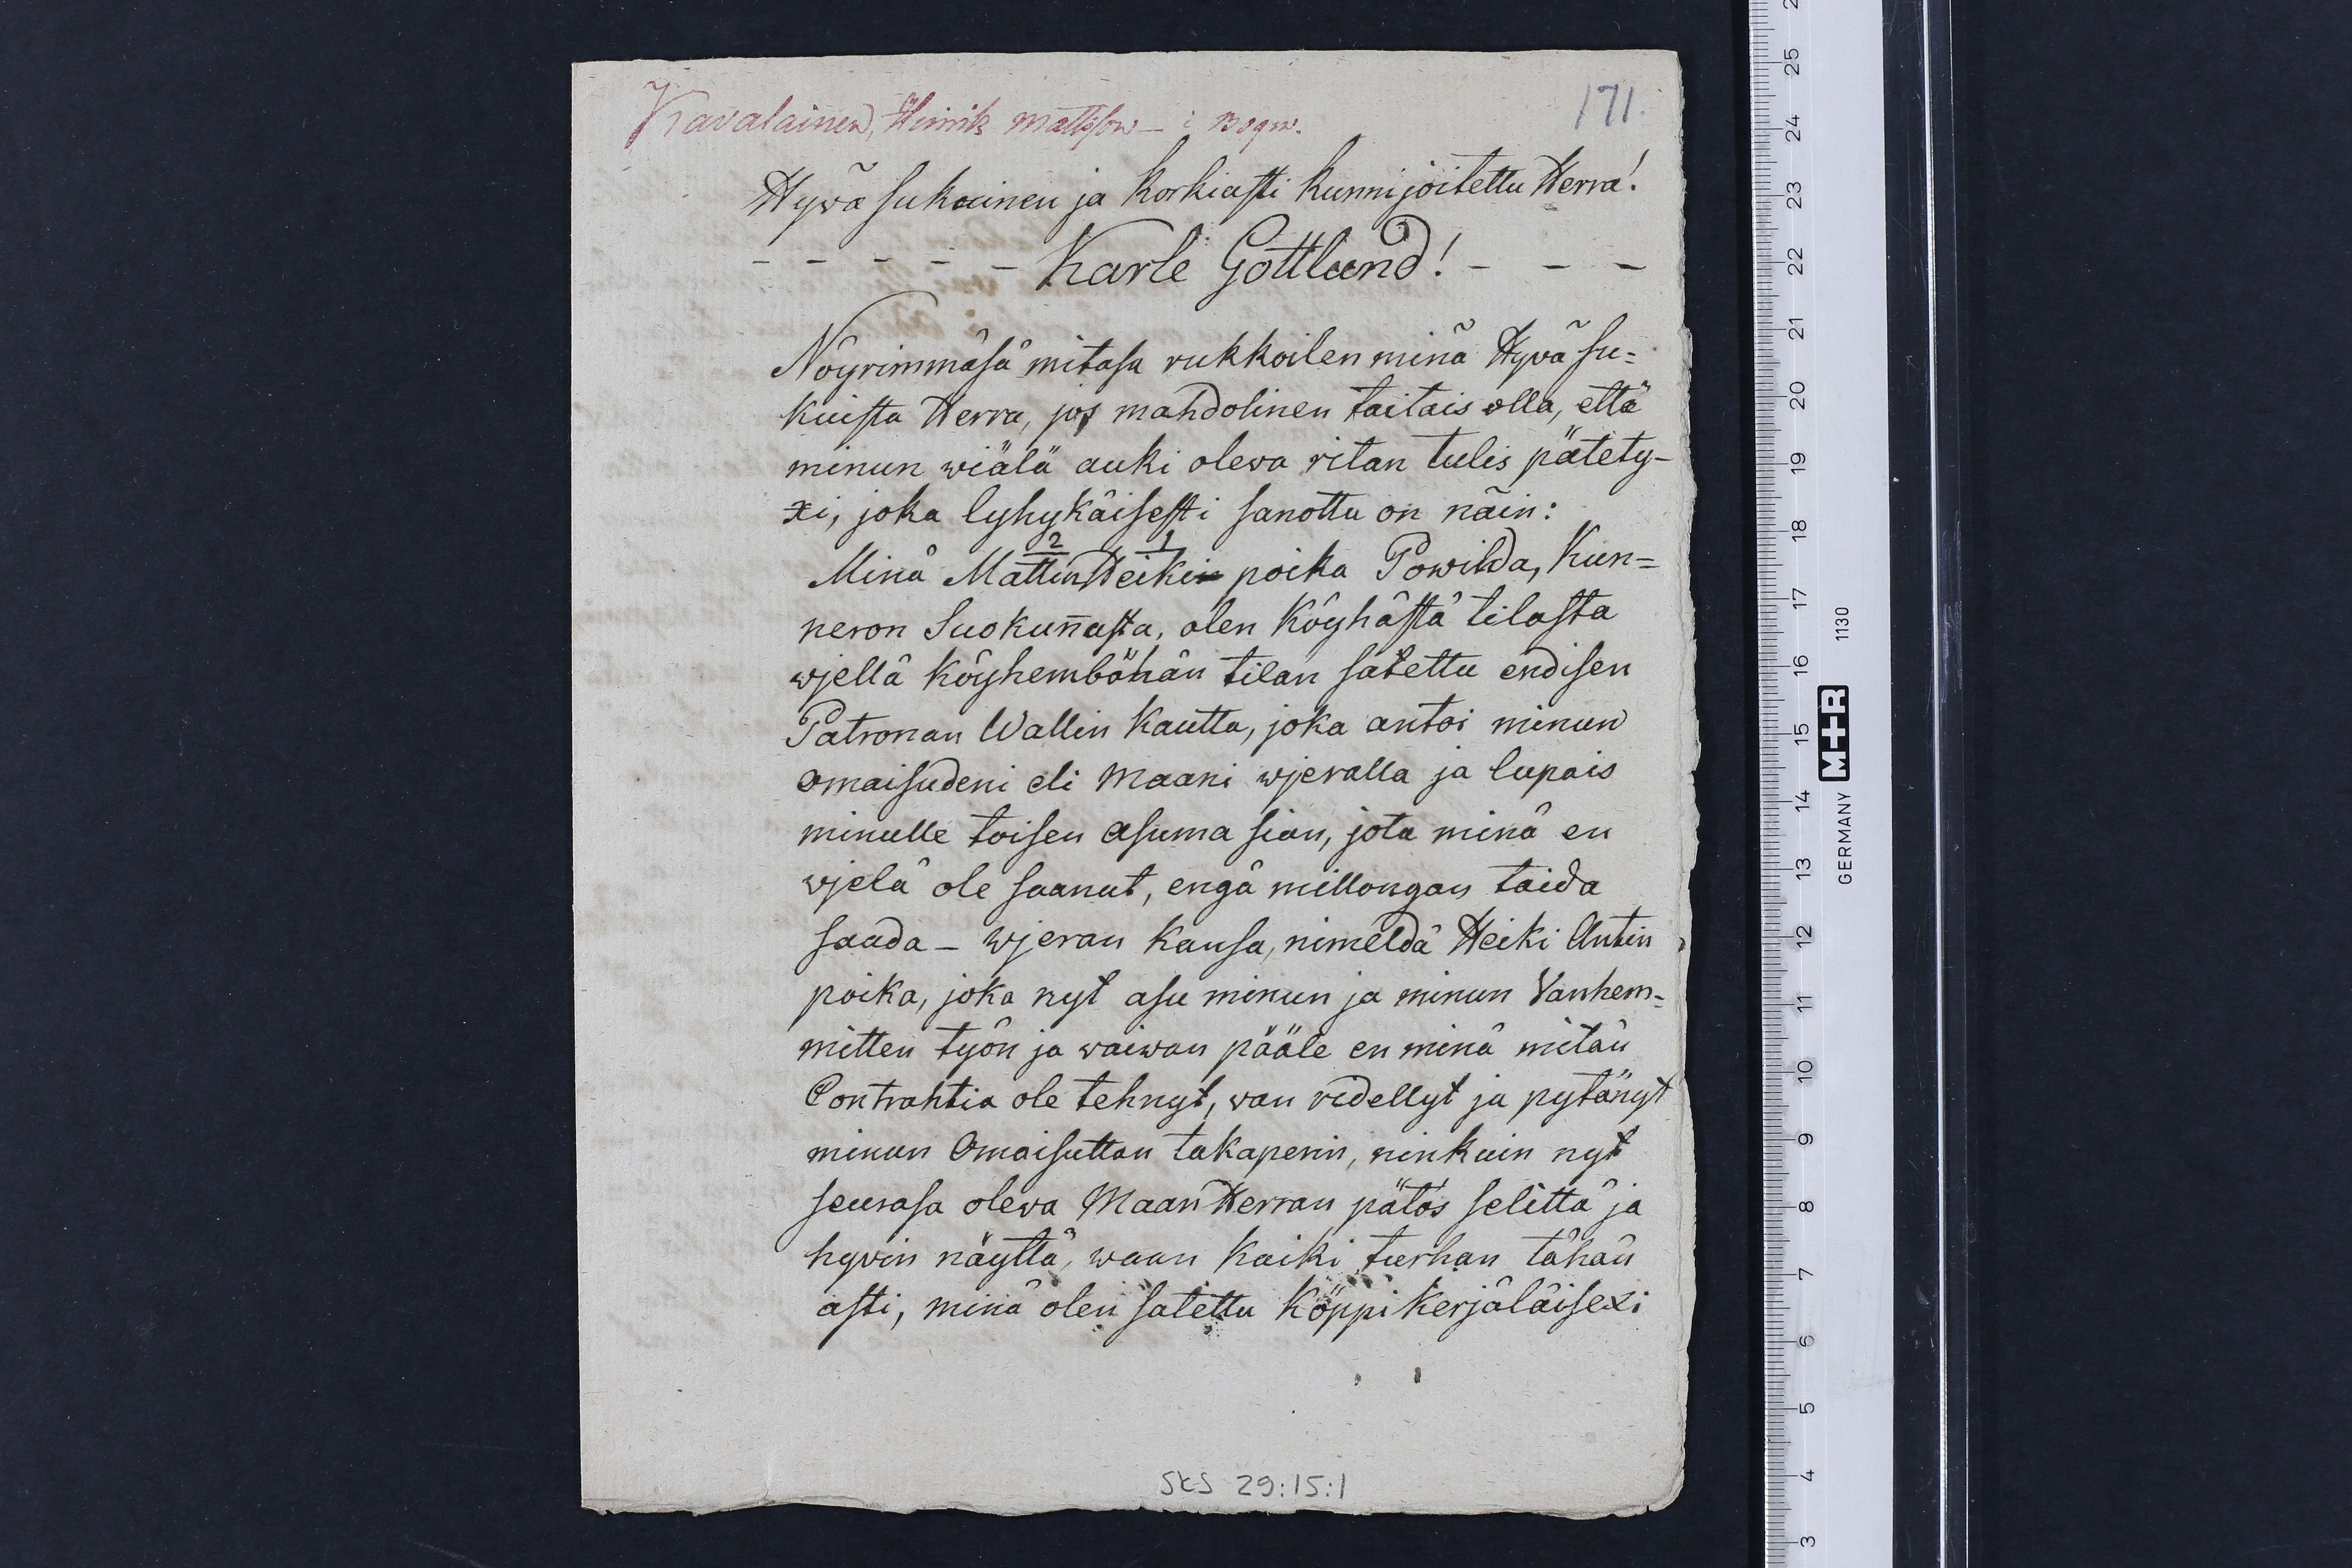 Kavalainen, Hinrik Mattsson – i Bogen.
171.
Hywä sukuinen ja Korkiasti Kunnijoitettu Herra!
- - - - - Karle Gottlund! - - -
Nöyrimmäsä mitasa rukkoilen minä Hyvä su=
kuista Herra, jos mahdolinen taitais olla, että
minun wiälä auki oleva ritan tulis pätety-
xi, joka lyhykäisesti sanottu on näin:
2 1
Minä Mattin Heikin poika Powilda, Kun=
neron Suokun̄asta, olen Köyhästä tilasta
wjellä köyhembähän tilan satettu endisen
Patronan Wallin Kautta, joka antoi minun
omaisudeni eli Maani wjeralla ja lupais
minulle toisen asuma sian, jota minä en
wjelä ole saanut, engä millongan taida
saada – wjeran Kansa, nimeldä Heiki Antin
poika, joka nyt asu minun ja minun Vanhem=
mitten työn ja waiwan pääle en minä mitän
Contrahtia ole tehnyt, van redellyt ja pytänyt
minun Omaisuttan takaperin, ninkuin nyt
seurasa oleva Maan Herran pätös selittä ja
hyvin näyttä, waan kaiki turhan tähän
asti, minä olen satettu Köppi Kerjäläisexi
SKS 29:15:1
3
4
5
6
7
8
9
10
11
12
13
14
15
16
17
18
19
20
21
22
23
24
25
GERMANY M+R 1130